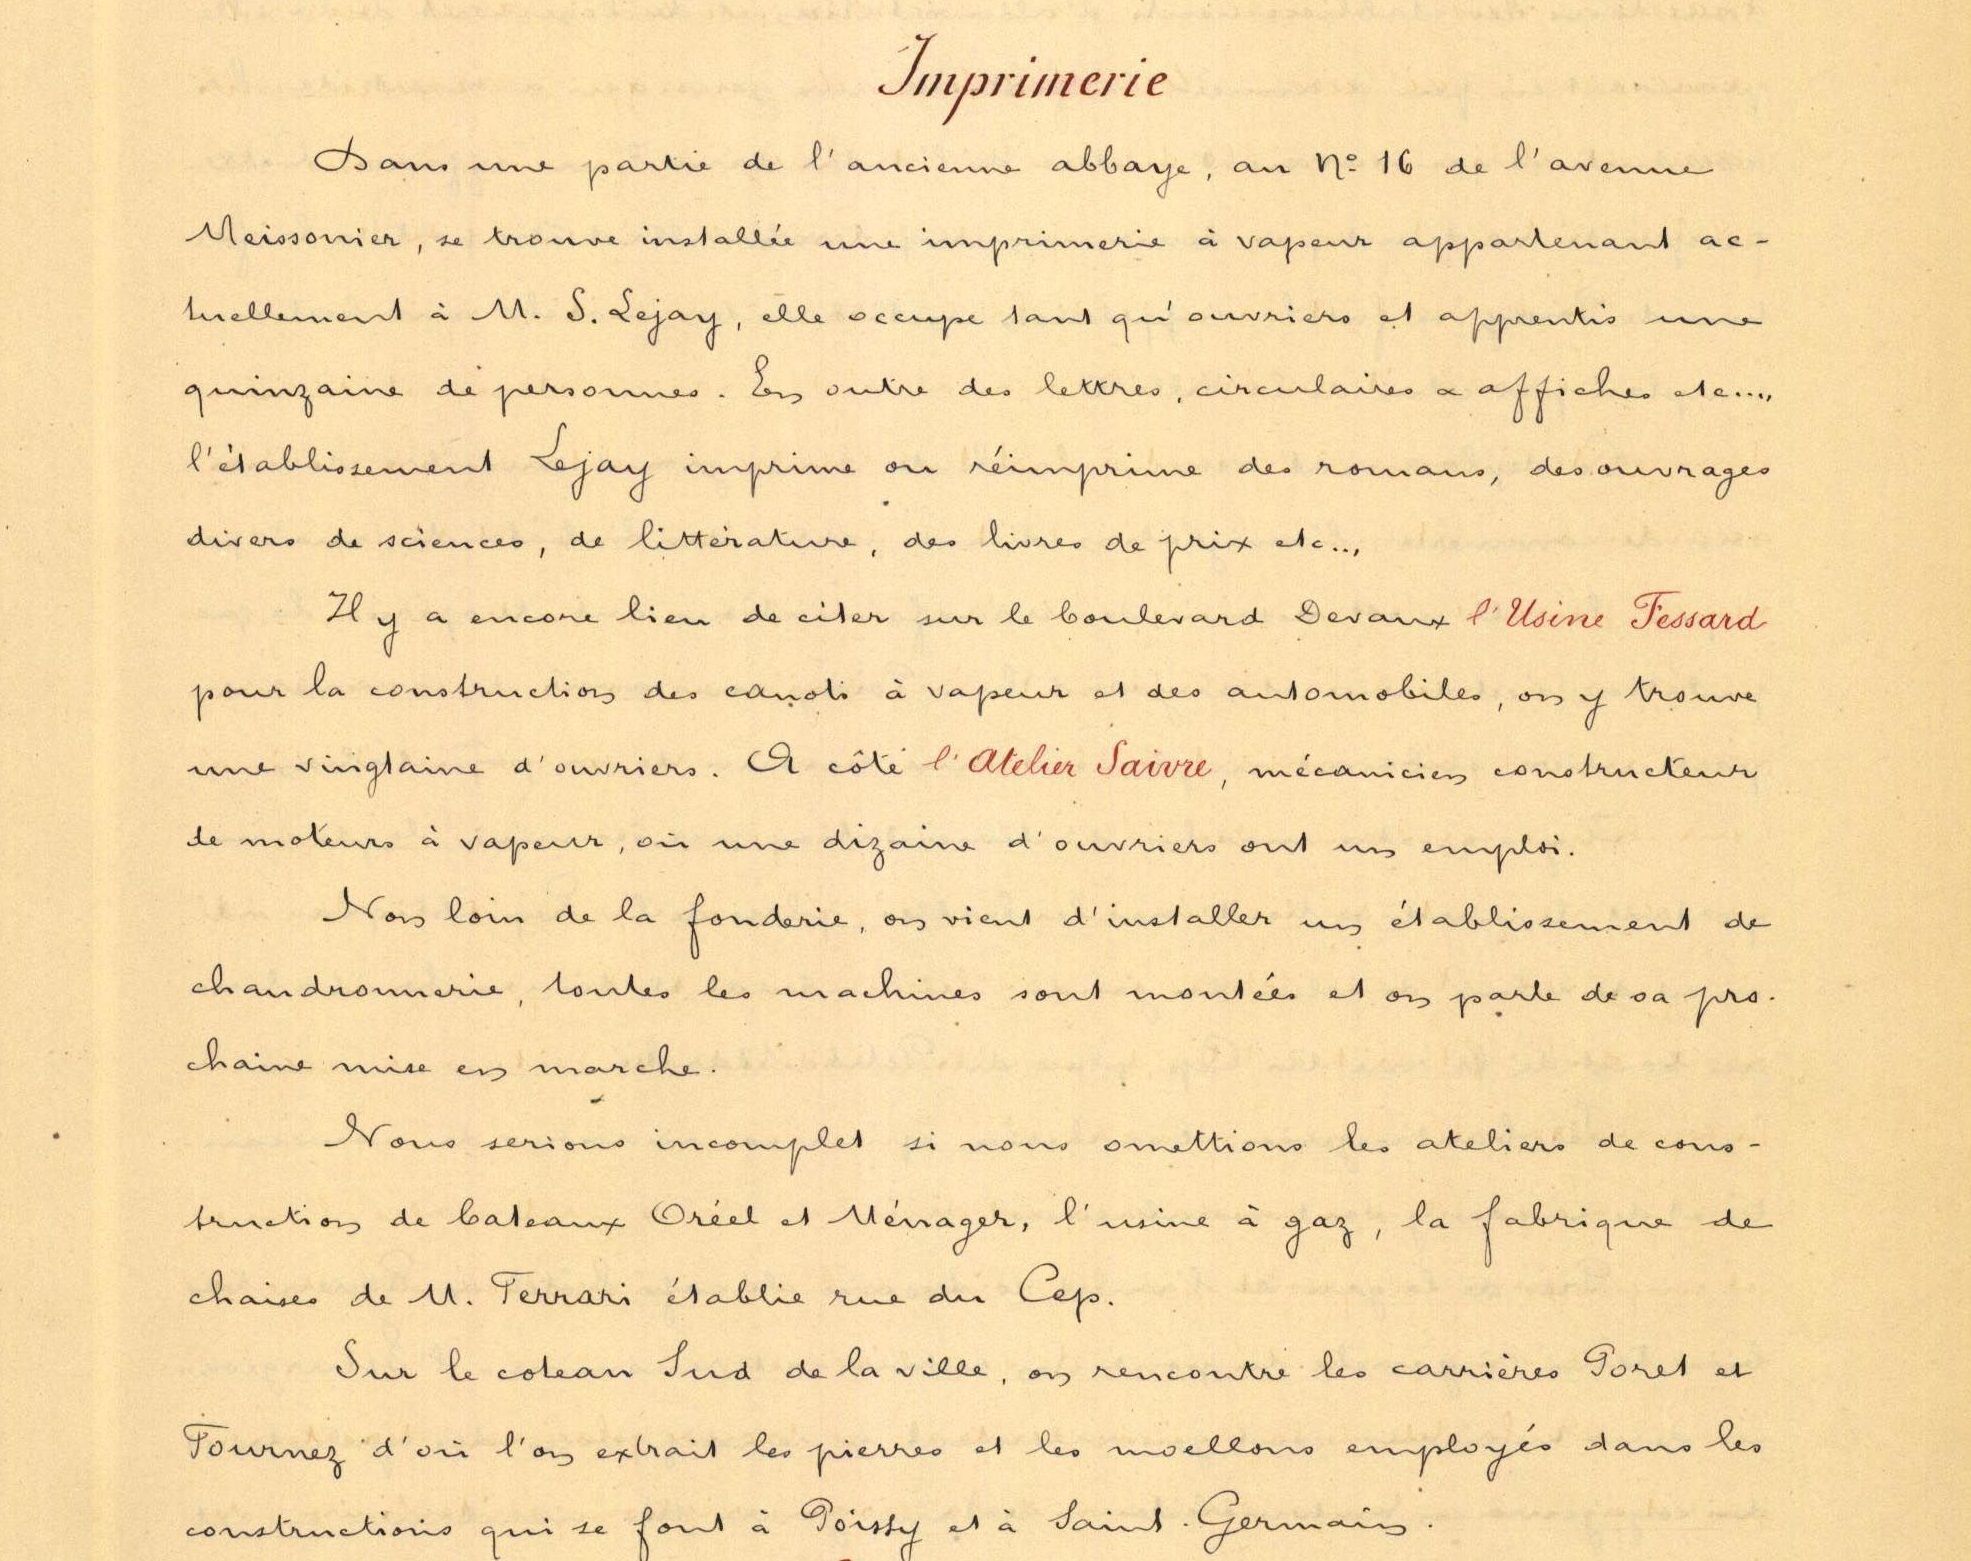 Imprimerie
Dans une partie de l'ancienne abbaye, au No 16 de l'avenue
Meissonier, se trouve installée une imprimerie à vapeur appartenant ac-
tuellement à M. S. Lejay, elle occupe tant qu'ouvriers et apprentis une
quinzaine de personnes. En outre des lettres, circulaires & affiches etc...,
l'établissement Lejay imprime ou réimprime des romans, des ouvrages
divers de sciences, de littérature, des livres de prix etc..,
Il y a encore lieu de citer sur le boulevard Devaux l'Usine Fessard
pour la construction des canots à vapeur et des automobiles, on y trouve
une vingtaine d'ouvriers. A côté l'Atelier Saivre, mécanicien constructeur
de moteurs à vapeur, où une dizaine d'ouvriers ont un emploi.
Non loin de la fonderie, on vient d'installer un établissement de
chaudronnerie, toutes les machines sont montées et on parle de sa pro-
chaine mise en marche.
Nous serions incomplet si nous omettions les ateliers de cons-
truction de bateaux Oréel et Ménager, l'usine à gaz, la fabrique de
chaises de M. Ferrari établie rue du Cep.
Sur le coteau Sud de la ville, on rencontre les carrières Poret et
Fournez d'où l'on extrait les pierres et les moellons employés dans les
constructions qui se font à Poissy et à Saint-Germain.